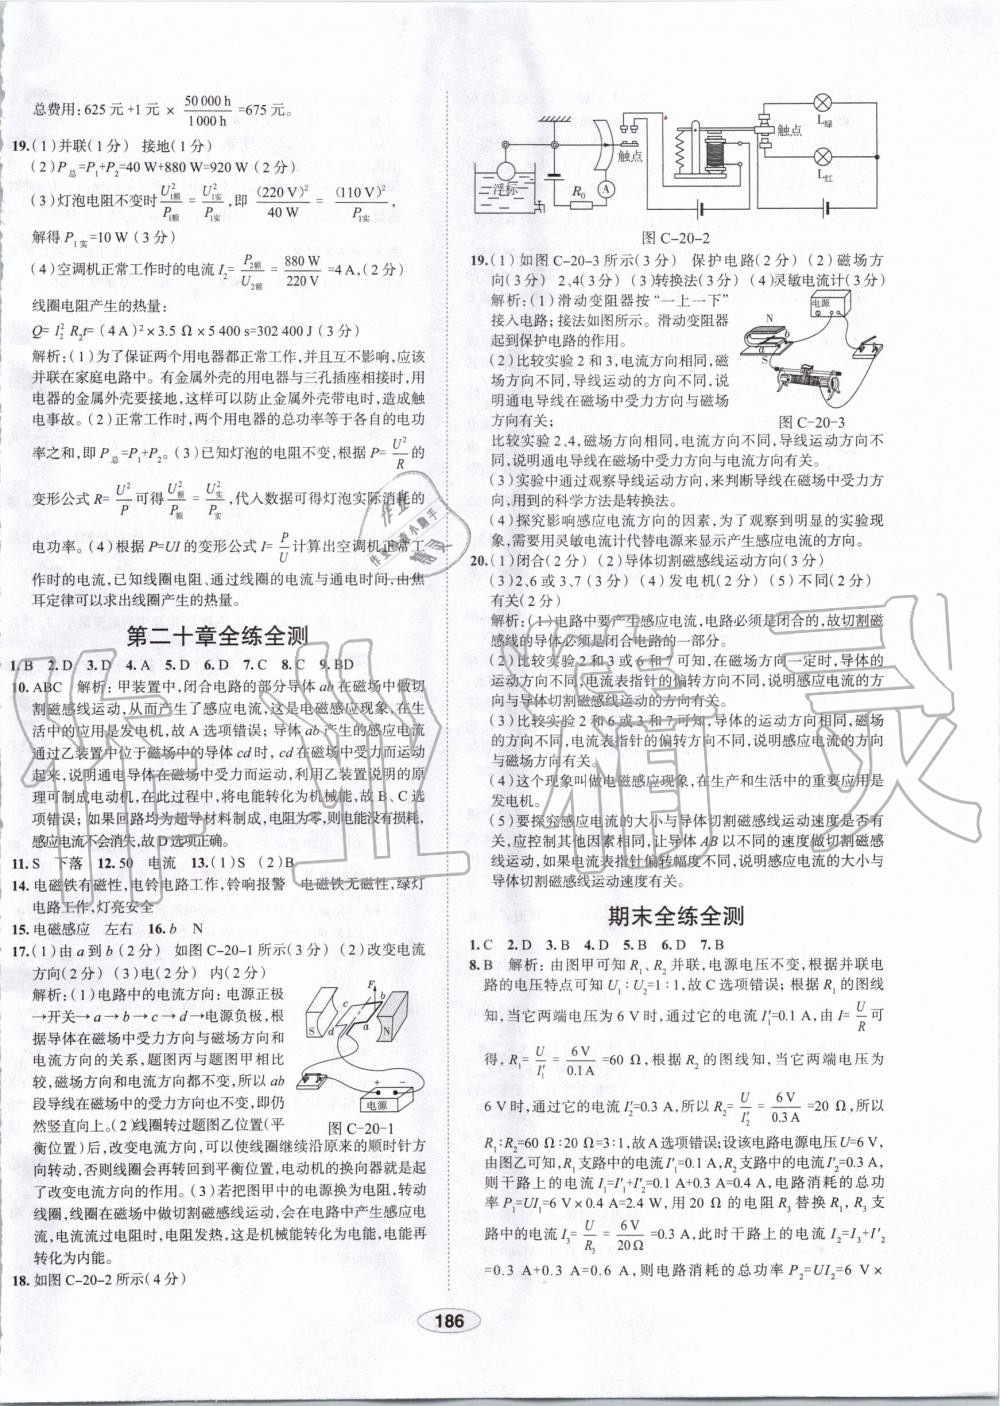 总费用:625 元 +1 元 × 50 000 h/1 000 h =675 元。
19.(1)并联(1分) 接地(1分)
(2)P总=P1+P2=40 W+880 W=920 W(2分)
(3)灯泡电阻不变时 U²1额/P1额 = U²1实/P1实,即 (220 V)²/40 W = (110 V)²/P1实,
解得 P1实=10 W(3分)
(4)空调机正常工作时的电流 I2= P2额/U2额 = 880 W/220 V =4 A,(2分)
线圈电阻产生的热量:
Q= I²2 R2t=(4 A)²×3.5 Ω×5 400 s=302 400 J(3分)
解析:(1)为了保证两个用电器都正常工作,并且互不影响,应该
并联在家庭电路中。有金属外壳的用电器与三孔插座相接时,用
电器的金属外壳要接地,这样可以防止金属外壳带电时,造成触
电事故。(2)正常工作时,两个用电器的总功率等于各自的电功
率之和,即 P总=P1+P2。(3)已知灯泡的电阻不变,根据 P= U²/R 的
变形公式 R= U²/P 可得 U²额/P额 = U²实/P实,代入数据可得灯泡实际消耗的
电功率。(4)根据 P=UI 的变形公式 I= P/U 计算出空调机正常工
作时的电流,已知线圈电阻、通过线圈的电流与通电时间,由焦
耳定律可以求出线圈产生的热量。
第二十章全练全测
1.B 2.D 3.D 4.A 5.D 6.D 7.C 8.C 9.BD
10.ABC 解析:甲装置中,闭合电路的部分导体 ab 在磁场中做切
割磁感线运动,从而产生了感应电流,这是电磁感应现象,在生
活中的应用是发电机,故 A 选项错误;导体 ab 产生的感应电流
通过乙装置中位于磁场中的导体 cd 时,cd 在磁场中受力而运动
起来,说明通电导体在磁场中受力而运动,利用乙装置说明的原
理可制成电动机,在此过程中,将电能转化为机械能,故 B、C 选
项错误;如果回路均为超导材料制成,电阻为零,则电能没有损耗,
感应电流不会消失,故 D 选项正确。
11.S 下落 12.50 电流 13.(1)S (2)B
14.电磁铁有磁性,电铃电路工作,铃响报警 电磁铁无磁性,绿灯
电路工作,灯亮安全
15.电磁感应 左右 16.b N
17.(1)由 a 到 b(2分) 如图 C-20-1 所示(3分) (2)改变电流
方向(2分) (3)电(2分) 内(2分)
解析:(1)电路中的电流方向:电源正极
→开关→a→b→c→d→电源负极,根
据导体在磁场中受力方向与磁场方向和
电流方向的关系,题图丙与题图甲相比
较,磁场方向和电流方向都不变,所以 ab
段导线在磁场中的受力方向也不变,即仍
然竖直向上。(2)线圈转过题图乙位置(平
衡位置)后,改变电流方向,可以使线圈继续沿原来的顺时针方
向转动,否则线圈会再转回到平衡位置,电动机的换向器就是起
了改变电流方向的作用。(3)若把图甲中的电源换为电阻,转动
线圈,线圈在磁场中做切割磁感线运动,会在电路中产生感应电
流,电流流过电阻时,电阻发热,这是机械能转化为电能,电能再
转化为内能。
F
b
c
S
d
a
N
电源
图 C-20-1
18.如图 C-20-2 所示(4分)
L绿
触点
触点
浮标
R0
A
L红
图 C-20-2
19.(1)如图 C-20-3 所示(3分) 保护电路(2分) (2)磁场方
向(3分) 2,4(3分) (3)转换法(3分) (4)灵敏电流计(3分)
解析:(1)滑动变阻器按“一上一下”
接入电路;接法如图所示。滑动变阻器
起到保护电路的作用。
(2)比较实验 2 和 3,电流方向相同,磁
场方向不同,导线运动的方向不同,说
明通电导线在磁场中受力方向与磁场
方向有关;
电源
N
S
图 C-20-3
比较实验 2、4,磁场方向相同,电流方向不同,导线运动方向不
同,说明通电导线在磁场中受力方向与电流方向有关。
(3)实验中通过观察导线运动方向,来判断导线在磁场中受力方
向,用到的科学方法是转换法。
(4)探究影响感应电流方向的因素,为了观察到明显的实验现
象,需要用灵敏电流计代替电源来显示产生感应电流的方向。
20.(1)闭合(2分) (2)导体切割磁感线运动方向(3分)
(3)2,6 或 3,7(3分) (4)发电机(2分) (5)不同(2分)
有关(2分)
解析:(1)电路中要产生感应电流,电路必须是闭合的,故切割磁
感线的导体必须是闭合电路的一部分。
(2)比较实验 2 和 3 或 6 和 7 可知,在磁场方向一定时,导体的
运动方向不同,电流表指针的偏转方向不同,说明感应电流的方
向与导体切割磁感线运动的方向有关。
(3)比较实验 2 和 6 或 3 和 7 可知,导体的运动方向相同,磁场
的方向不同,电流表指针的偏转方向不同,说明感应电流的方向
与磁场方向有关。
(4)这个现象叫做电磁感应现象,在生产和生活中的重要应用是
发电机。
(5)要探究感应电流的大小与导体切割磁感线运动速度是否有
关,应控制其他因素相同,让导体 AB 以不同的速度做切割磁感
线运动,如果电流表指针偏转幅度不同,说明感应电流的大小与
导体切割磁感线运动速度有关。
期末全练全测
1.C 2.D 3.B 4.D 5.B 6.D 7.B
8.B 解析:由图甲可知 R1、R2 并联,电源电压不变,根据并联电
路的电压特点可知 U1∶U2=1∶1,故 C 选项错误;根据 R1 的图线
知,当它两端电压为 6 V 时,通过它的电流 I′1=0.1 A,由 I= U/R 可
得,R1= U/I′1 = 6 V/0.1 A =60 Ω,根据 R2 的图线知,当它两端电压为
6 V 时,通过它的电流 I′2=0.3 A,所以 R2= U/I′2 = 6 V/0.3 A =20 Ω,所以
R1∶R2=60 Ω∶20 Ω=3∶1,故 A 选项错误;设电路电源电压 U=6 V,
由图乙可知,R1 支路中的电流 I′1=0.1 A,R2 支路中的电流 I′2=0.3 A,
则干路上的电流 I1=I′1+I′2=0.1 A+0.3 A=0.4 A,电路消耗的总功
率 P1=UI1=6 V×0.4 A=2.4 W,用 20 Ω 的电阻 R3 替换 R1,R3 支
路中的电流 I3= U/R3 = 6 V/20 Ω =0.3 A,此时干路上的电流 I2=I3+I′2
=0.3 A+0.3 A=0.6 A,则电路消耗的总功率 P2=UI2=6 V×
186
作业精灵